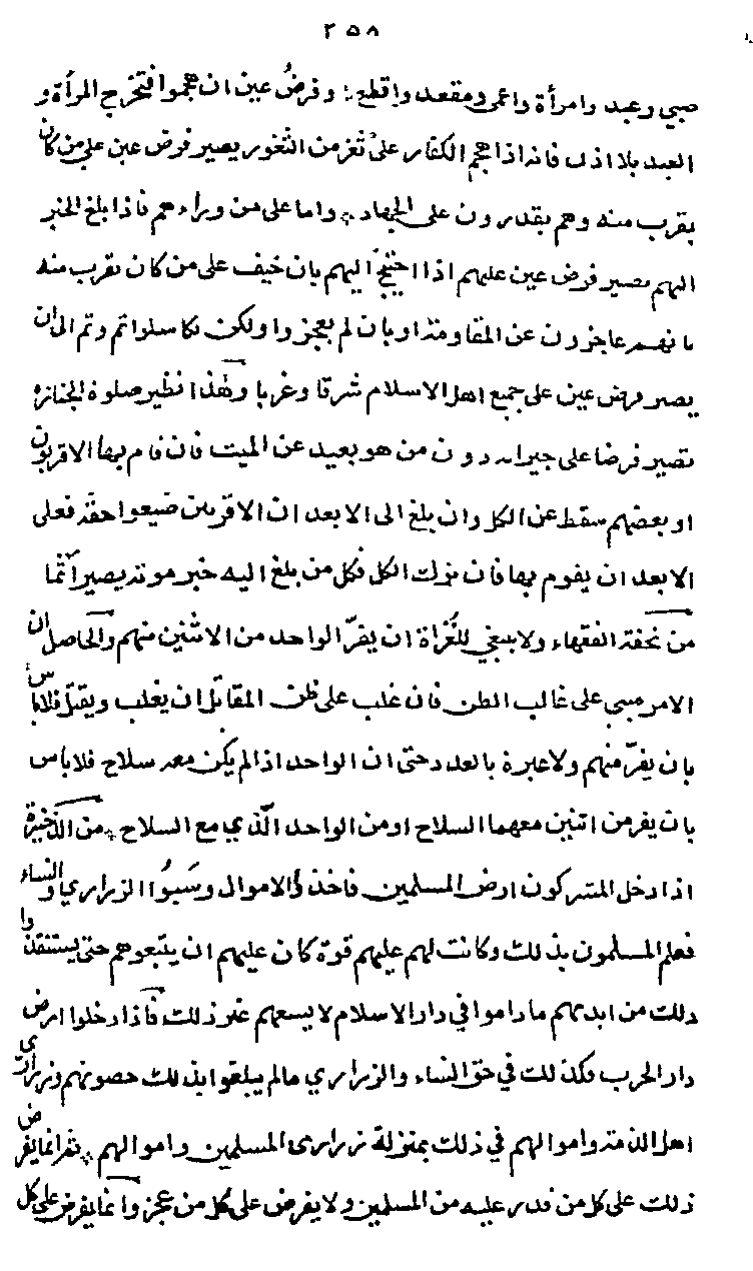 ٢٥٨
صبي وعبد وامرأة واعمى ومقعد واقطع؛ وفرض عين ان هجموا فتخرج المرأة و
العبد بلا اذن فانه اذا هجم الكفار على ثغر من الثغور يصير فرض عين على من كان
يقرب منه وهم يقدرون على الجهاد * واما على من وراءهم فاذا بلغ الخبر
اليهم يصير فرض عين عليهم اذا احتيج اليهم بان خيف على من كان يقرب منه
بانهم عاجزون عن المقاومة او بان لم يعجزوا ولكن تكاسلوا ثم وثم الى ان
يصير فرض عين على جميع اهل الاسلام شرقا وغربا وهذا نظير صلوة الجنازه
تصير فرضا على جيرانه دون من هو بعيد عن الميت فان قام بها الاقربون
او بعضهم سقط عن الكل وان بلغ الى الابعد ان الاقربين ضيعوا حقه فعلى
الابعد ان يقوم بها فان ترك الكل فكل من بلغ اليه خبر موته يصير آثما
من تحفة الفقهاء ولا ينبغي للغُزاة ان يفرّ الواحد من الاثنين منهم والحاصل ان
الامر مبني على غالب الظن فان غلب على ظن المقاتل ان يغلب ويقتل فلا بأس
بان يفرّ منهم ولا عبرة بالعدد حتى ان الواحد اذا لم يكن معه سلاح فلا باس
بان يفر من اثنين معهما السلاح او من الواحد الّذي مع السلاح * من الذخيرة
اذا دخل المشركون ارض المسلمين فاخذوا الاموال وسَبَوُا الزراري والنساء
فعلم المسلمون بذلك وكانت لهم عليهم قوة كان عليهم ان يتبعوهم حتى يستنقذوا
ذلك من ايديهم ما داموا في دار الاسلام لا يسعهم غير ذلك فاذا دخلوا ارض
دار الحرب فكذلك في حق النساء والزراري مالم يبلغوا بذلك حصونهم وزراري
اهل الذمة واموالهم في ذلك بمنزلة زراري المسلمين واموالهم * ثم انما يفرض
ذلك على كل من قدر عليه من المسلمين ولا يفرض على كل من عجز وانما يفرض على كل